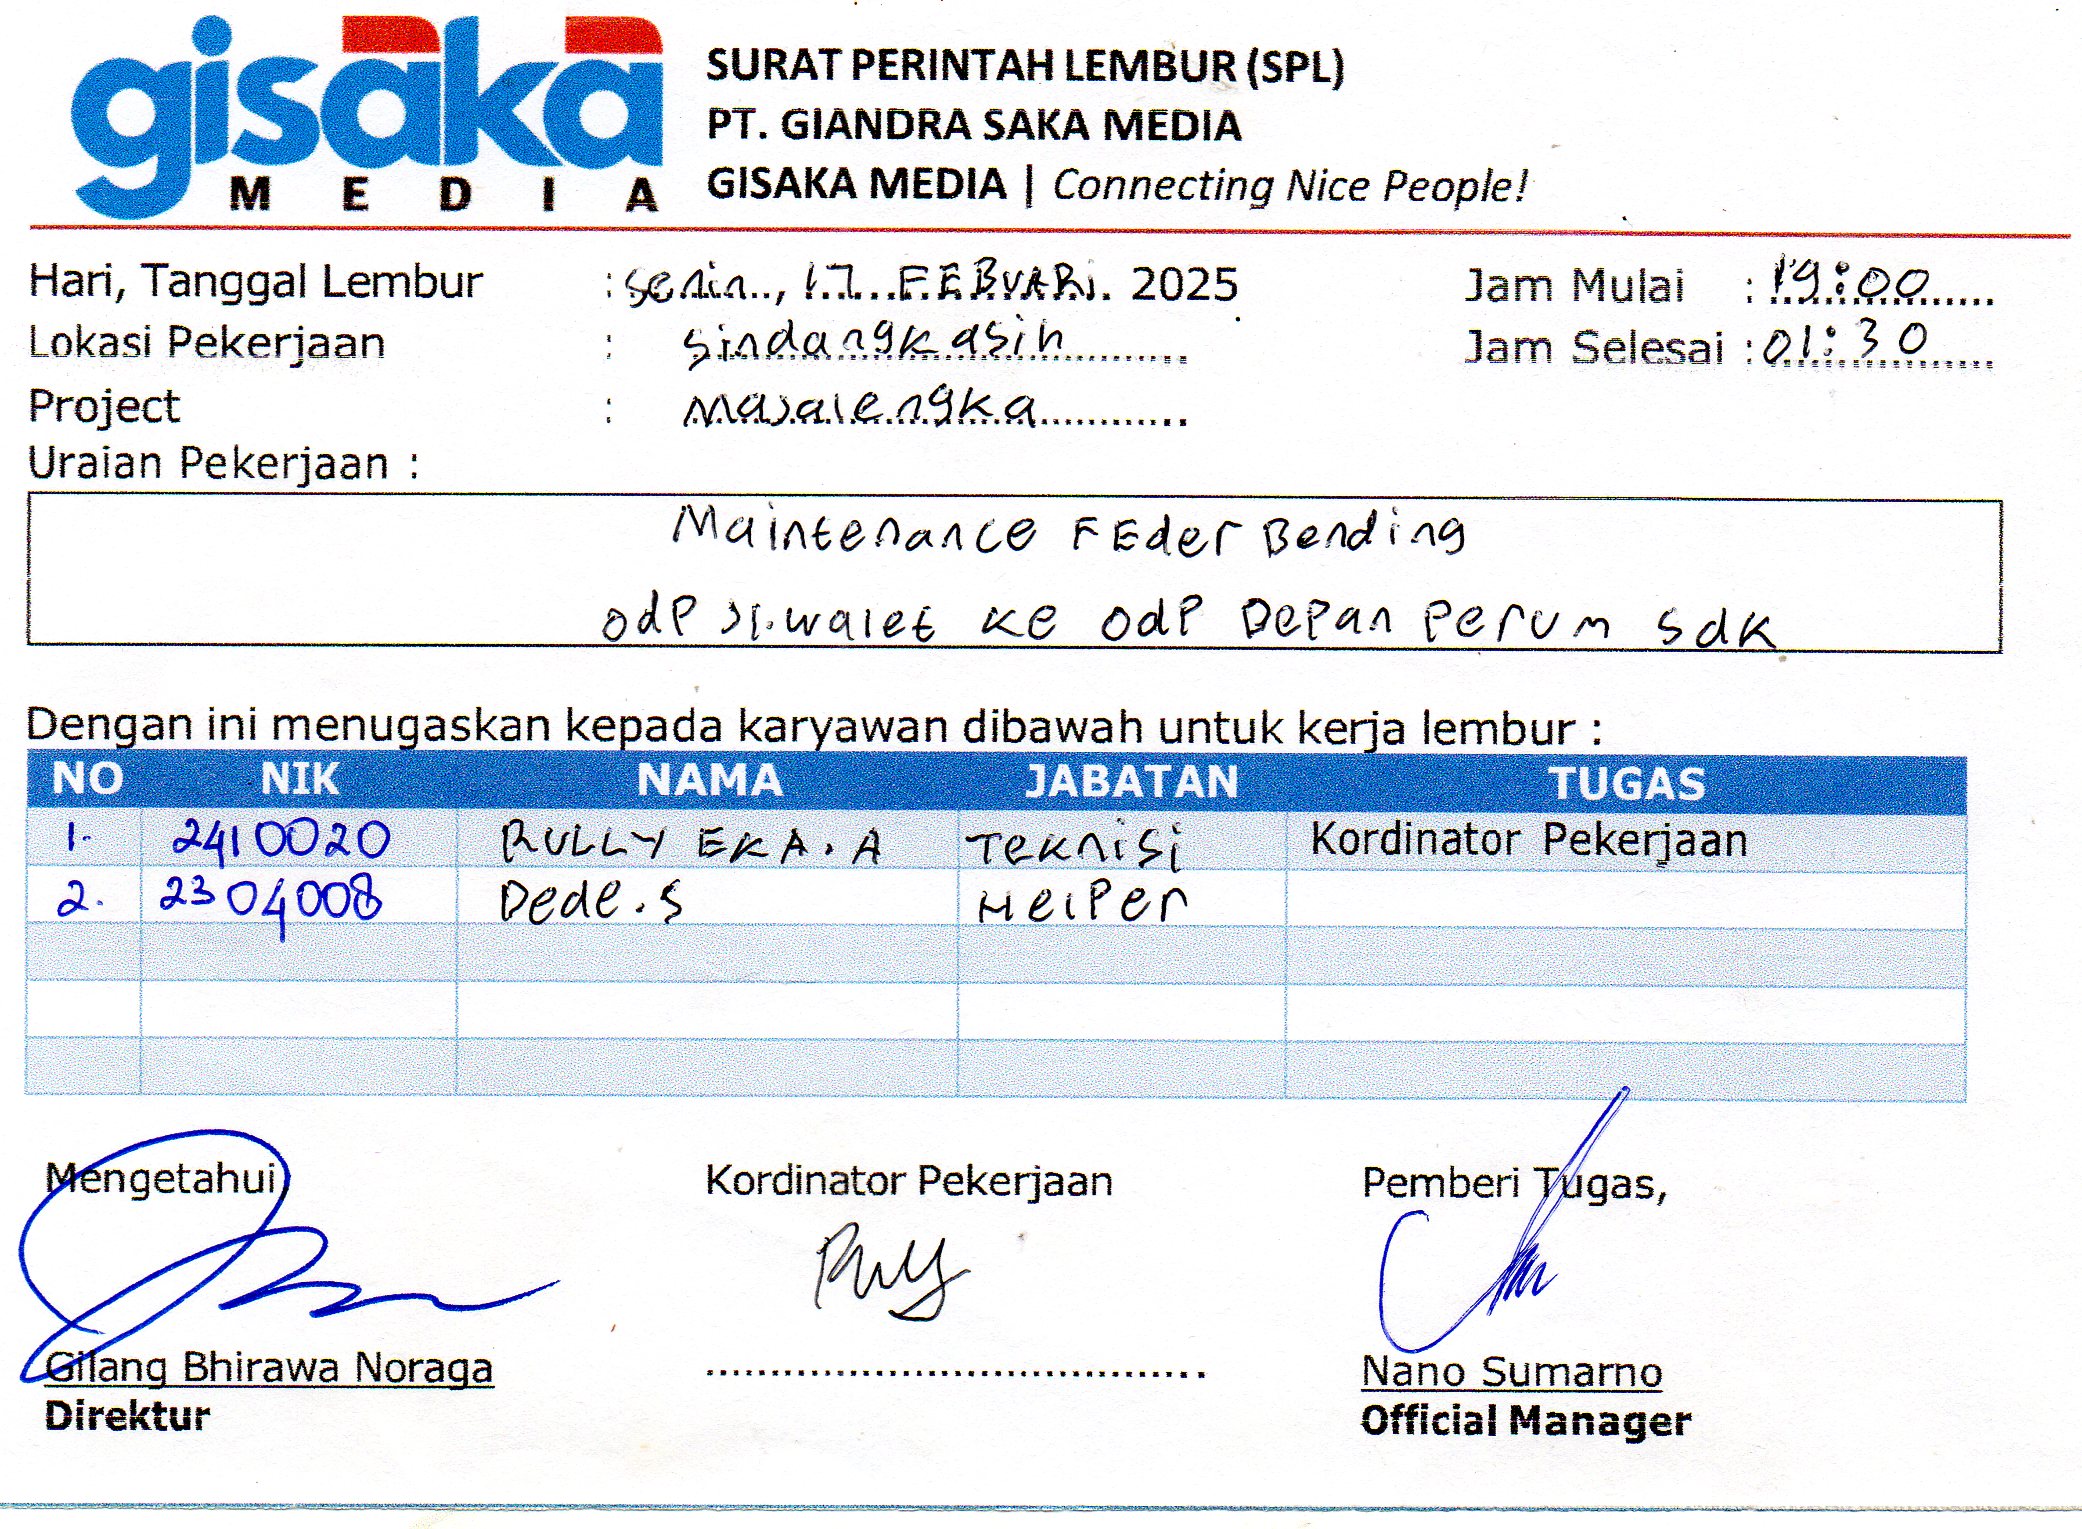 gisaka
MEDIA
SURAT PERINTAH LEMBUR (SPL)
PT. GIANDRA SAKA MEDIA
GISAKA MEDIA | Connecting Nice People!
Hari, Tanggal Lembur : Senin, 17 FEBUARi 2025 Jam Mulai : 19:00
Lokasi Pekerjaan : Sindangkasih Jam Selesai : 01:30
Project : Majalengka
Uraian Pekerjaan :
Maintenance FEder Bending
odP Jl.walet ke odP Depan Perum sdk
Dengan ini menugaskan kepada karyawan dibawah untuk kerja lembur :
NO NIK NAMA JABATAN TUGAS
1. 2410020 RULLY EKA.A Teknisi Kordinator Pekerjaan
2. 2304008 Dede.s Helper
Mengetahui Kordinator Pekerjaan Pemberi Tugas,
Gilang Bhirawa Noraga Nano Sumarno
Direktur Official Manager